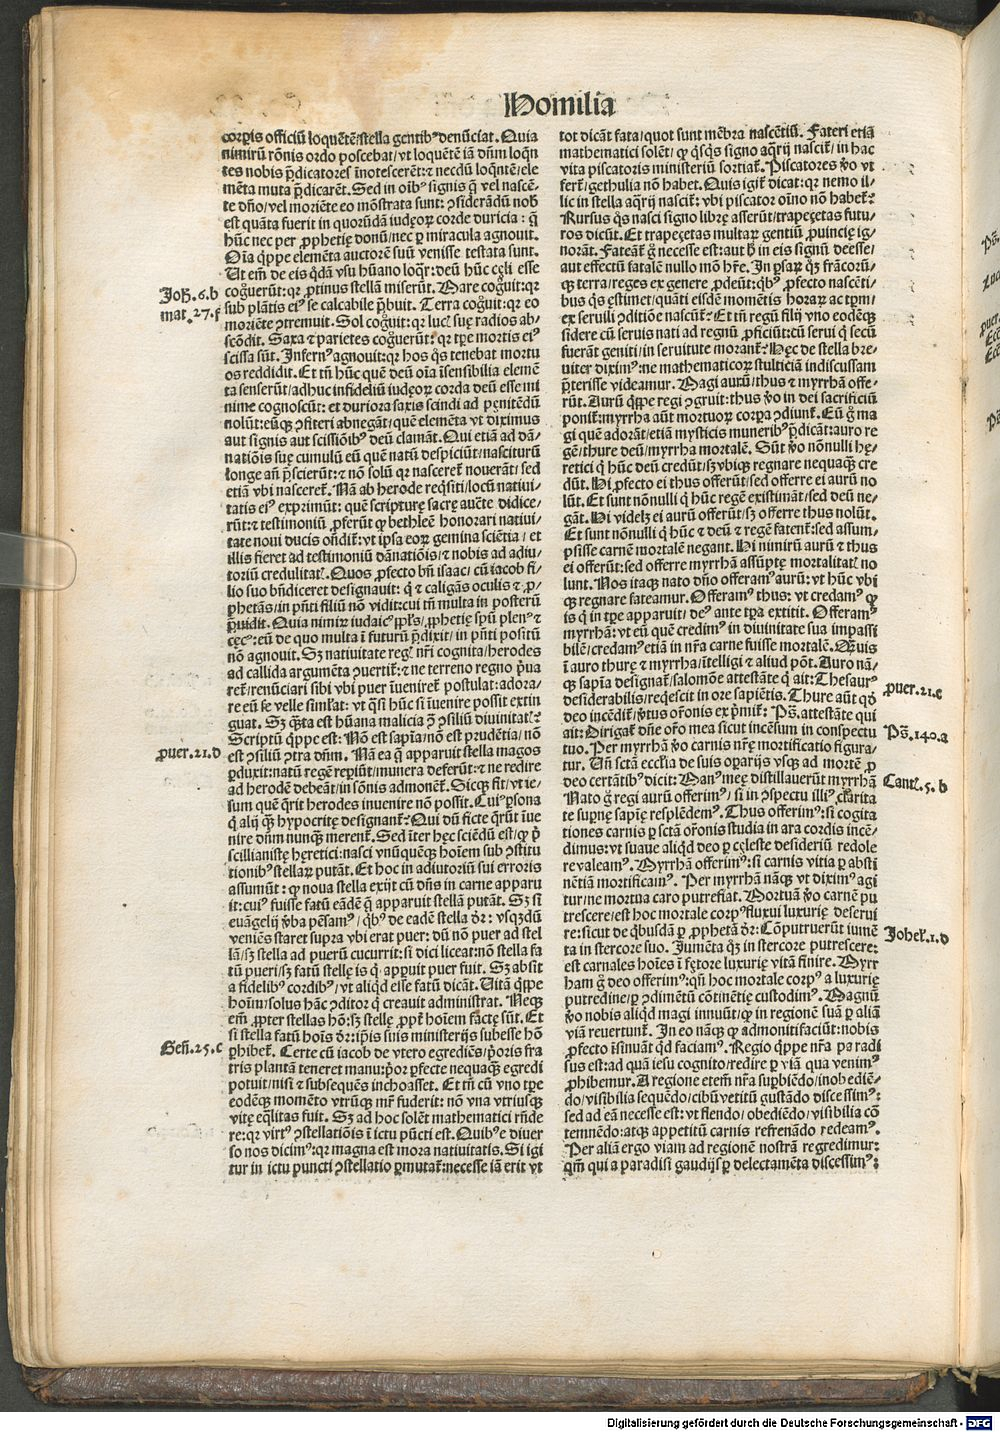 Homilia
corpꝑis officiū loquētē/stella gentibꝰ denūciat. Quia
nimirū rōnis ordo poscebat/vt loquētē iā dn̄m loqn̄
tes nobis p̄dicatores īnotescerēt: ⁊ necdū loqn̄tē/ele
mēta muta p̄dicarēt. Sed in oībꝰ signis q̄ vel nascē⸗
te dn̄o/vel moriēte eo mōstrata sunt: ꝯsiderādū nob̄
est quāta fuerit in quorūdā iudęoꝝ corde duricia: q̄
hūc nec per ꝓphetię donū/nec ꝑ miracula agnouit.
Oīa q̄ppe elemēta auctorē suū venisse testata sunt.
Ut em̄ de eis q̄dā vsu hūano loqr̄: deū hūc cęli esse
Joh̄.6.b
coḡuerūt: qꝛ ꝓtinus stellā miserūt. Mare coḡuit: qꝛ
mat.27.f
sub plātis eiꝰ se calcabile p̄buit. Terra coḡuit: qꝛ eo
moriēte ꝯtremuit. Sol coḡuit: qꝛ lucꝭ suę radios ab⸗
scōdit. Saxa ⁊ parietes coḡuerūt: qꝛ tꝑe mortis eiꝰ
scissa sūt. Infernꝰ agnouit: qꝛ hos q̄s tenebat mortu
os reddidit. Et tn̄ hūc quē deū oīa īsensibilia elemē
ta senserūt/adhuc infideliū iudęoꝝ corda deū esse mi
nime cognoscūt: et duriora saxis scindi ad pęnitēdū
nolūt: eūqꝫ ꝯfiteri abnegāt/quē elemēta vt diximus
aut signis aut scissiōibꝰ deū clamāt. Qui etiā ad dā⸗
natiōis suę cumulū eū quē natū despiciūt/nasciturū
longe an̄ p̄scierūt: ⁊ nō solū qꝛ nasceret̄ nouerāt/ sed
etiā vbi nasceret̄. Nā ab herode req̄siti/locū natiui⸗
tatis eiꝰ exprimūt: quē scripturę sacrę auctē didice⸗
rūt: ⁊ testimoniū ꝓferūt qꝙ bethleē honorari natiui⸗
tate noui ducis on̄dit̄: vt ipsa eoꝝ gemina sciētia/ et
illis fieret ad testimoniū dānatiōis/⁊ nobis ad adiu⸗
toriū credulitatꝭ. Quos ꝓfecto bn̄ isaac/ cū iacob fi⸗
lio suo bn̄diceret designauit: q̄ ⁊ caligās oculis ⁊ ꝓ⸗
phetās/in pn̄ti filiū nō vidit: cui tn̄ multa in posterū
p̄uidit. Quia nimiꝝ iudaicꝰ ppl̄s/ꝓphetię spū plenꝰ ⁊
cęcꝰ: eū de quo multa ī futurū p̄dixit/ in pn̄ti positū
nō agnouit. Sꝫ natiuitate regꝭ nr̄i cognita/herodes
ad callida argumēta ꝯuertit̄: ⁊ ne terreno regno p̄ua
ret̄/renūciari sibi vbi puer īueniret̄ postulat: adora⸗
re eū se velle siml̄at: vt q̄si hūc si īuenire possit extin
guat. Sꝫ q̄ta est hūana malicia ꝯ̄ ꝯsiliū diuinitatꝭ?
Scriptū q̄ppe est: Nō est sapīa/nō est prudētia/ nō
puer.21.d
est ꝯsiliū ꝯtra dn̄m. Nā ea q̄ apparuit stella magos
ꝑduxit: natū regē reꝑiūt/munera deferūt: ⁊ ne redire
ad herodē debeāt/in sōnis admonent̄. Sicqꝫ fit/vt ie⸗
sum quē q̄rit herodes inuenire nō possit. Cuiꝰ ꝑsona
q̄ alij qꝫ hypocritę designant̄? Qui dū ficte q̄rūt īue
nire dn̄m nunqꝫ merent̄. Sed īter hęc sciēdū est/qꝙ p̄
scillianistę hęretici: nasci vnūquēqꝫ hoīem sub ꝯstitu
tionibꝰ stellaꝝ putāt. Et hoc in adiutoriū sui erroris
assumūt: qꝙ noua stella exijt cū dn̄s in carne apparu
it: cuiꝰ fuisse fatū eādē q̄ apparuit stellā putāt. Sꝫ si
euāgelij v̄ba pēsamꝰ/ q̄bꝰ de eadē stella dr̄: vsqꝫdū
veniēs staret supra vbi erat puer: dū nō puer ad stel
lā/sꝫ stella ad puerū cucurrit: si dici liceat: nō stella fa
tū pueri/sꝫ fatū stellę is q̄ apparuit puer fuit. Sꝫ absit
a fidelibꝰ cordibꝰ/ vt aliqd̄ esse fatū dicāt. Uitā q̄ppe
hoīm/solus hāc ꝯditor q̄ creauit administrat. Neqꝫ
em̄ ꝓpter stellas hō: sꝫ stellę ꝓpt̄ hoīem factę sūt. Et
si stella fatū hoīs dr̄: ip̄is suis ministerijs subesse hō
Gen̄.25.c
ꝑhibet̄. Certe cū iacob de vtero egrediēs/p̄oris fra
tris plantā teneret manu: p̄or ꝑfecte nequaqꝫ egredi
potuit/nisi ⁊ subsequēs inchoasset. Et tn̄ cū vno tꝑe
eodēqꝫ momēto vtrūqꝫ mr̄ fuderit: nō vna vtriusqꝫ
vitę eq̄litas fuit. Sꝫ ad hoc solēt mathematici rn̄de
re: qꝛ virtꝰ ꝯstellatiōis ī ictu pūcti est. Quibꝰ e diuer
so nos dicimꝰ: qꝛ magna est mora natiuitatis. Si igi
tur in ictu puncti ꝯstellatio ꝑmutat̄: necesse iā erit vt
tot dicāt fata/quot sunt mēbra nascētiū. Fateri etiā
mathematici solēt/ qꝙ q̄sq̄s signo aq̄rij nascit̄/ in hac
vita piscatoris ministeriū sortiat̄. Piscatores v̄o vt
fert̄/gethulia nō habet. Quis igit̄ dicat: qꝛ nemo il⸗
lic in stella aq̄rij nascit̄: vbi piscator oīno nō habet̄?
Rursus q̄s nasci signo librę asserūt/trapeçetas futu⸗
ros dicūt. Et trapeçetas multaꝝ gentiū ꝓuincię ig⸗
norāt. Fateāt̄ g̊ necesse est: aut h̄ in eis signū deesse/
aut effectū fatalē nullo mō hr̄e. In ꝑsaꝝ q̄ꝫ frācorū/
qꝫ terra/reges ex genere ꝓdeūt: q̄bꝰ ꝓfecto nascēti⸗
bus q̄s ęstimet/quāti eisdē momētis horaꝝ ac tꝑm/
ex seruili ꝯditiōe nascūt̄? Et tn̄ regū filij vno eodēqꝫ
sidere cū seruis nati ad regnū ꝓficiūt: cū serui q̄ secū
fuerāt geniti/in seruitute morant̄? Hęc de stella bre⸗
uiter diximꝰ: ne mathematicoꝝ stulticiā indiscussam
p̄terisse videamur. Magi aurū/thus ⁊ myrrhā offe⸗
rūt. Aurū q̄ppe regi ꝯgruit: thus v̄o in dei sacrificiū
ponit̄: myrrha aūt mortuoꝝ corpa ꝯdiunt̄. Eū g̊ ma
gi quē adorāt/etiā mysticis muneribꝰ p̄dicāt: auro re
gē/thure deū/myrrha mortalē. Sūt v̄o nōnulli hę⸗
retici q̄ hūc deū credūt/sꝫ vbiqꝫ regnare nequaqꝫ cre
dūt. Hi ꝓfecto ei thus offerūt/sed offerre ei aurū no
lūt. Et sunt nōnulli q̄ hūc regē existimāt/sed deū ne⸗
gāt. Hi videlꝫ ei aurū offerūt/sꝫ offerre thus nolūt.
Et sunt nōnulli q̄ hūc ⁊ deū ⁊ regē fatent̄: sed assum⸗
psisse carnē mortalē negant. Hi nimirū aurū ⁊ thus
ei offerūt: sed offerre myrrhā assūptę mortalitatꝭ no
lunt. Nos itaqꝫ nato dn̄o offeramꝰ aurū: vt hūc vbi
qꝫ regnare fateamur. Offeramꝰ thus: vt credamꝰ qꝙ
is q̄ in tꝑe apparuit/ deꝰ ante tꝑa extitit. Offeramꝰ
myrrhā: vt eū quē credimꝰ in diuinitate sua impassi
bilē/credamꝰ etiā in nr̄a carne fuisse mortalē. Qꝫuis
ī auro thurę ⁊ myrrha/ītelligi ⁊ aliud pōt. Auro nā⸗
puer.21.c
qꝫ sapīa designat̄/salomōe attestāte q̄ ait: Thesaurꝰ
desiderabilis/reqescit in ore sapiētis. Thure aūt qd̄
deo incēdit̄/v̄tus or̄onis exp̄mit̄: Ps̄. attestāte qui
Ps̄.140.a
ait: Dirigat̄ dn̄e or̄o mea sicut incēsum in conspectu
tuo. Per myrrhā v̄o carnis nr̄ę mortificatio figura⸗
tur. Un̄ sctā eccl̄ia de suis oꝑarijs vsqꝫ ad mortē ꝓ
Cantꝭ.5.b
deo certātibꝰ dicit: Manꝰ meę distillauerūt myrrhā
Nato g̊ regi aurū offerimꝰ/ si in ꝯspectu illiꝰ clarita
te supnę sapię resplēdemꝰ. Thus offerimꝰ: si cogita
tiones carnis ꝑ sctā or̄onis studia in ara cordis incē⸗
dimus: vt suaue aliqd̄ deo ꝑ cęleste desideriū redole
re valeamꝰ. Myrrhā offerimꝰ: si carnis vitia ꝑ absti
nētiā mortificamꝰ. Per myrrhā nāqꝫ vt diximꝰ agi
tur/ne mortua caro putrefiat. Mortuā v̄o carnē pu
trescere/est hoc mortale corpꝰ fluxui luxurię deserui
Johel.1.d
re: sicut de q̄busdā ꝑ ꝓphetā dr̄: Cōputruerūt iumē
ta in stercore suo. Jumēta q̄ꝫ in stercore putrescere:
est carnales hoīes ī fętore luxurię vitā finire. Myrr
ham g̊ deo offerimꝰ: qn̄ hoc mortale corpꝰ a luxurię
putredine/ꝑ ꝯdimētū cōtinētię custodimꝰ. Magnū
v̄o nobis aliqd̄ magi innuūt/qꝙ in regionē suā ꝑ aliā
viā reuertunt̄. In eo nāqꝫ qꝙ admoniti faciūt: nobis
ꝓfecto īsinuāt qd̄ faciamꝰ. Regio q̄ppe nr̄a paradi
sus est: ad quā iesu cognito/redire ꝑ viā qua venimꝰ
ꝓhibemur. A regione etem̄ nr̄a suꝑbiēdo/inobediē⸗
do/visibilia sequēdo/cibū vetitū gustādo discessimꝰ:
sed ad eā necesse est: vt flendo/obediēdo/visibilia cō
temnēdo: atqꝫ appetitū carnis refrenādo redeamꝰ.
Per aliā ergo viam ad regionē nostrā regredimur:
qm̄ qui a paradisi gaudijs ꝑ delectamēta discessimꝰ:
Digitalisierung gefördert durch die Deutsche Forschungsgemeinschaft - DFG